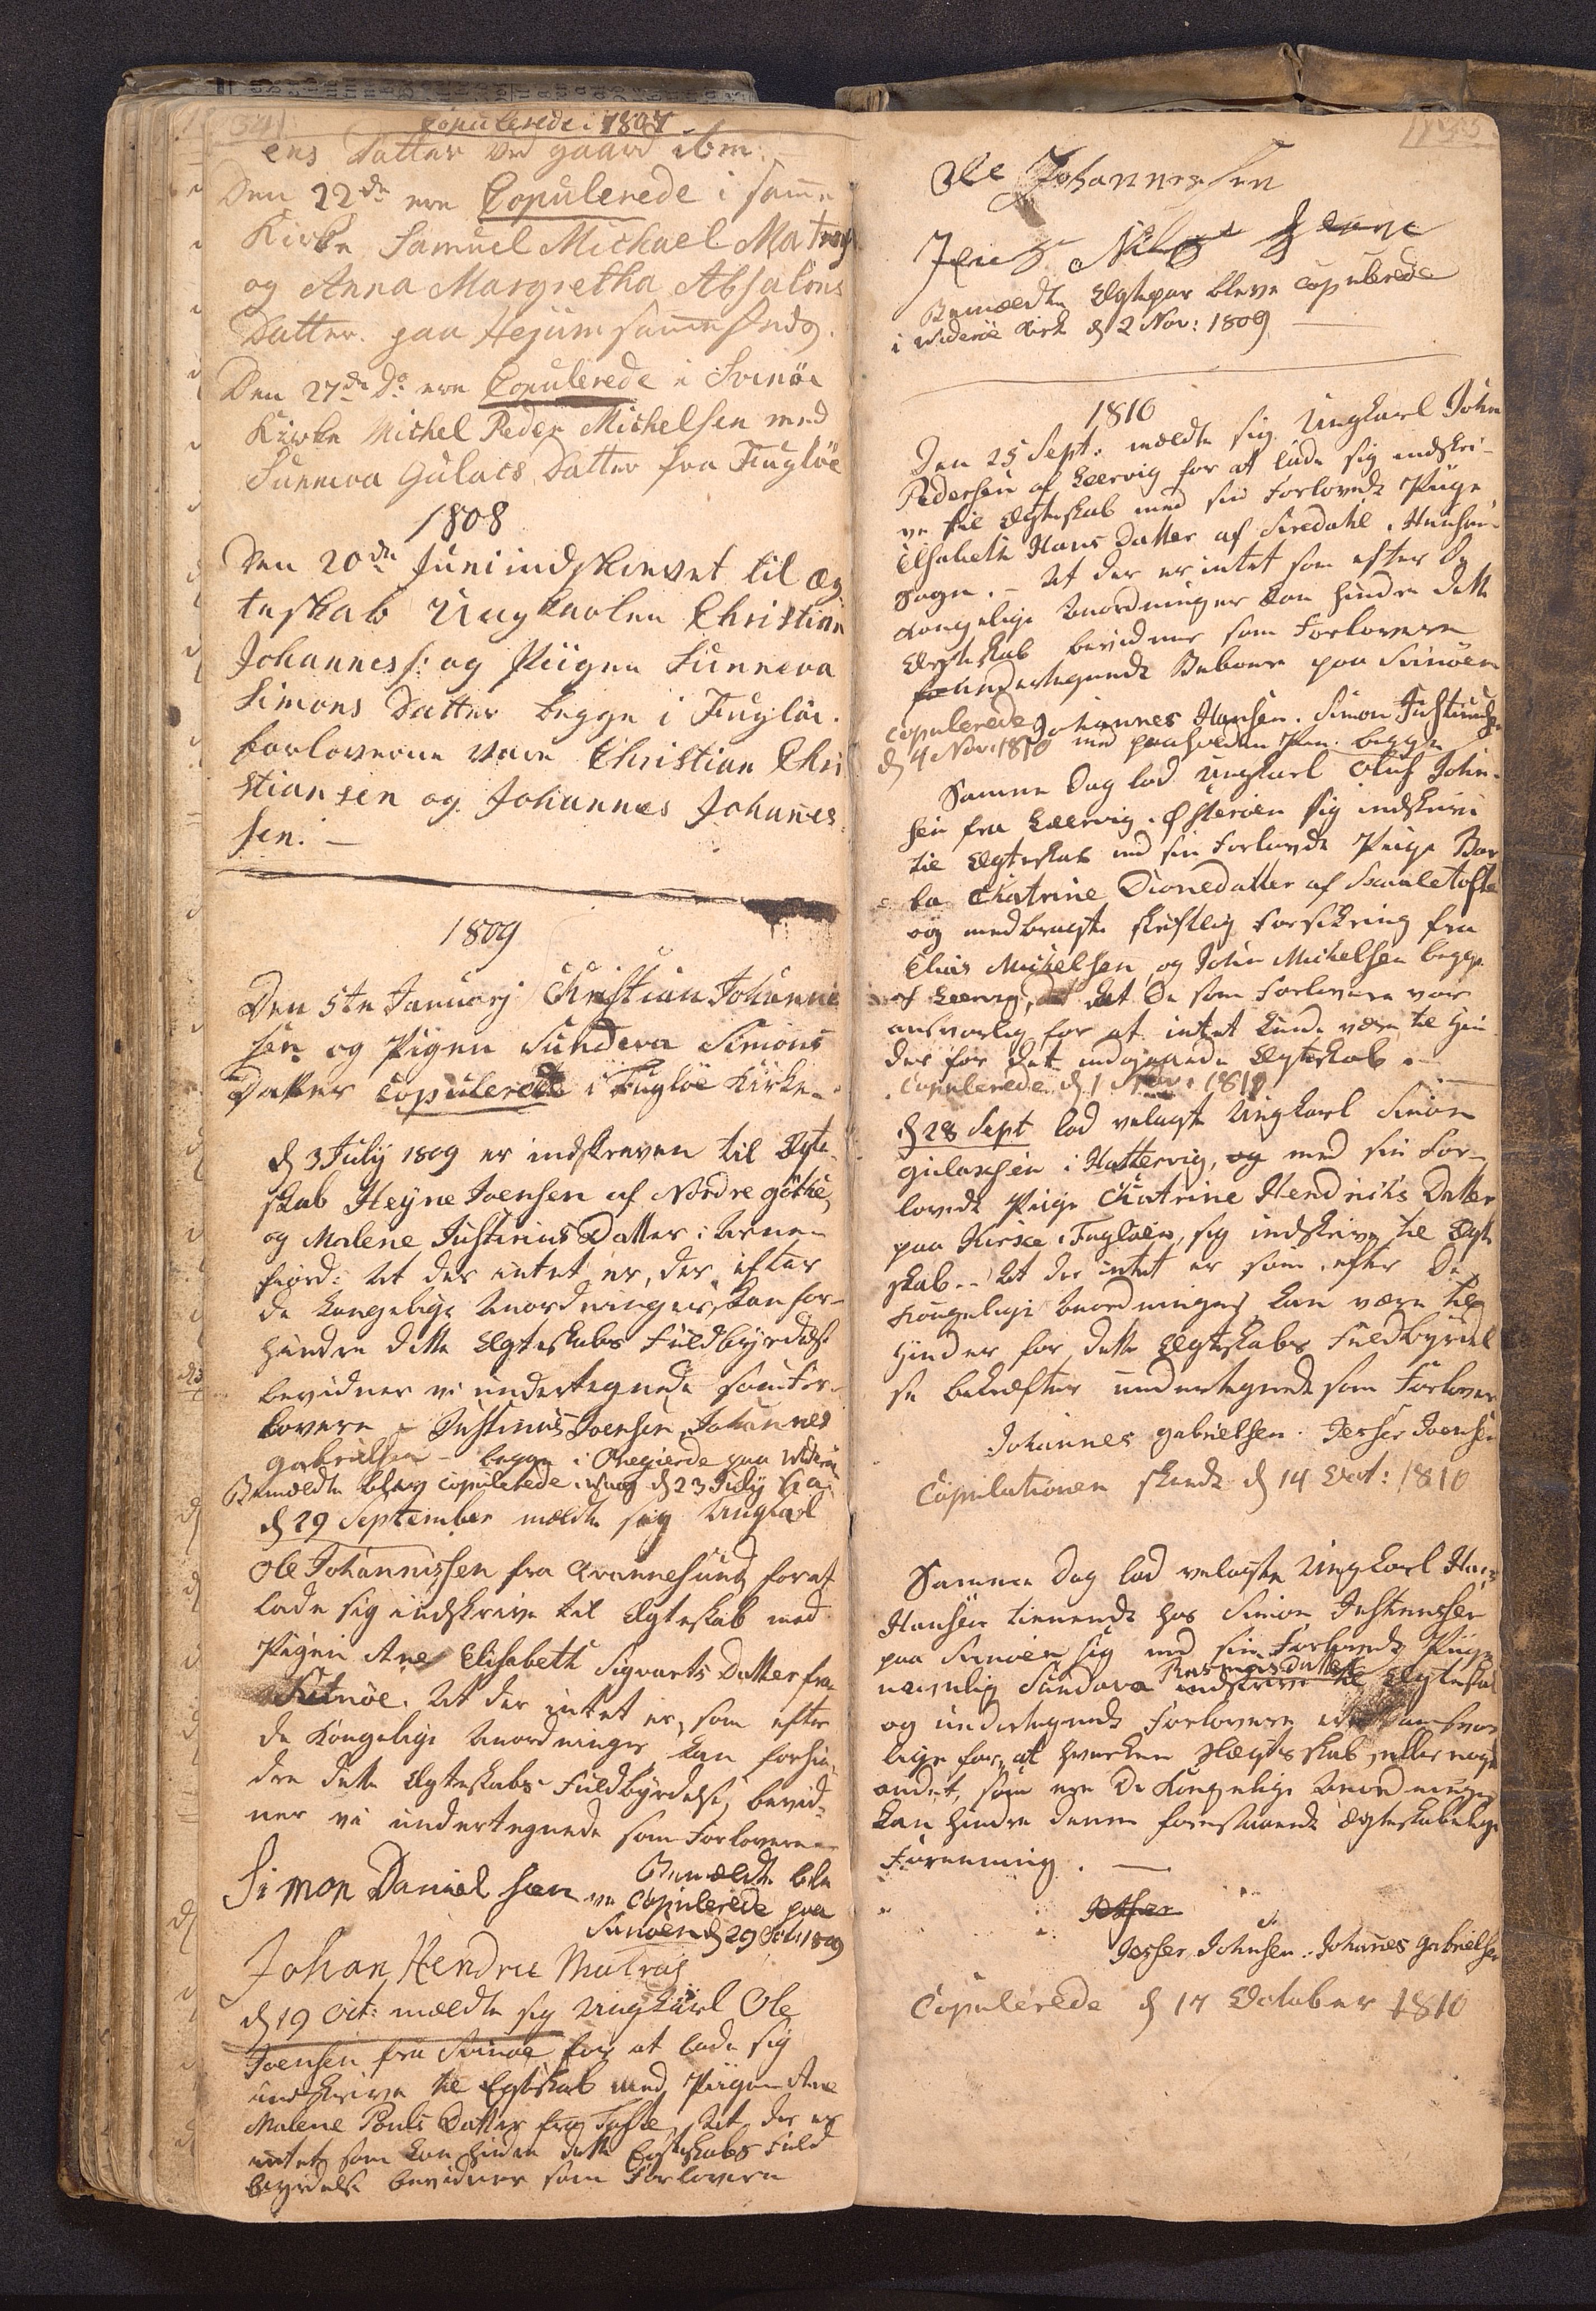 Copulerede i 1807
ens Datter ved gaard ibm:
Den 22de ere Copulerede i samme
Kirke Samuel Michael Matras
og Anna Margretha Absalons
Datter paa Hejum sammesteds.
Den 27de Do ere Copulerede i Svinöe
Kirke Michel Peder Michelsen med
Sunneva Gulacs Datter fra Fuglöe
1808
Den 20de Juni indskrevet til Æg
teskab Ungkarlen Christian
Johanness: og Piigen Sunneva
Simons Datter begge i Fuglöe.
Forloverne vare Christian Chri
stiansen og Johannes Johannes
sen. —
1809
Den 5te Januarj Christian Johanne
sen og Pigen Sundeva Simons
Datter Copulerede i Fuglöe Kirke.
d 3 July 1809 er indskreven til Ægte
skab Heyne Joensen af Nordre Göthe,
og Malene Justinus Datter i Arne-
fiord: At der intet er, der efter
de kongelige Anordninger, kan for-
hindre dette Ægteskabs Fuldbyrdelse
bevidner vi undertegnede som For-
lovere – Justinus Joensen, Johannes
Gabrielsen – begge i Qvegierde paa Wideröe
Bemældte blev copulerede d 23 July
d 29 September meldte sig Ungkarl
Ole Johannissen fra Qvannesund for at
lade sig indskrive til Ægteskab med
Pigen Ane Elisabeth Sigvarts Datter fra
Svinöe. At der intet er, som efter
de Kongelige Anordninger kan forhin-
dre dette Ægteskabs Fuldbyrdelse, bevid-
ner vi undertegnede som Forlovere
Bemældte ble
Simon Daniel sen ve Copulerede paa
Svinöen d 29 1809
Johan Hendric Matras
d 19 Oct: meldte sig Ungkarl Ole
Joensen fra Svinöe for at lade sig
indskrive til Egteskab med Piigen Ane
Malene Pouls Datter fra Tofte, At der er
intet som kan hindre dette Egteskabs Fuld
byrdelse bevidner som Forlovere
Ole Johannessen
Jens
Bemældte Ægtepar bleve copulerede
i Wideröe Kirke d 2 Nov: 1809
1810
Den 25 Sept: meldte sig Ungkarl John
Pedersen af Leervig for at lade sig indskri-
ve til Ægteskab med sin Forlovede Piige
Elsabeth Hans Datter af Siredahl
Sogn. – At der er intet som efter De
Kongelige Anordninger kan hindre dette
Ægteskab bevidner som Forlovere
undertegnede Beboere paa Svinöen
copulerede Johannes Hansen. Simon Justinus
d 4 Nov: 1810 med paaholden Pen. begge
Samme Dag lod Ungkarl Oluf John-
sen fra Leervig. Österöen sig indskrive
til Ægteskab med sin Forlovede Piige Bar
ba Chatrine Dionedatter af Skaaletofte
og medbragte skriftlig Forsikring fra
Elias Mickelsen og John Michelsen begge
af Leervig, at De som Forlovere vare
ansvarlig for at intet kunde være til Hin
der for det indgaaende Ægteskab.
Copulerede d 1 Nov: 1810
d 28 Sept lod velagte Ungkarl Simon
Gulacsen i Hattervig, og med sin For-
lovede Piige Chatrine Hendrichs Datter
paa Kirke i Fuglöen, sig indskrive til Ægte
skab. – At der intet er som efter De
Kongelige Anordninger kan være til
Hinder for dette Ægteskabs Fuldbyrdel
se bekræfter undertegnede som Forlover
Johannes Gabrielsen. Jesser Joensen
Copulationen skeede d 14 Oct: 1810
Samme Dag lod velagte Ungkarl Hans
Hansen tienende hos Simon Justinussen
paa Svinöen sig med sin Forlovede Piige
Rasmusdatter
navnlig Sundova indskrive til Ægteskab
og undertegnede Forlovere ere ansvar
lige for, at hverken Slægtskab, eller noget
andet, som efter De Kongelige Anordninger
kan hindre denne forestaaende Ægteskabelige
Foreening. —
Jesser Johnsen. Johannes Gabrielsen
Copulerede d 17 October 1810